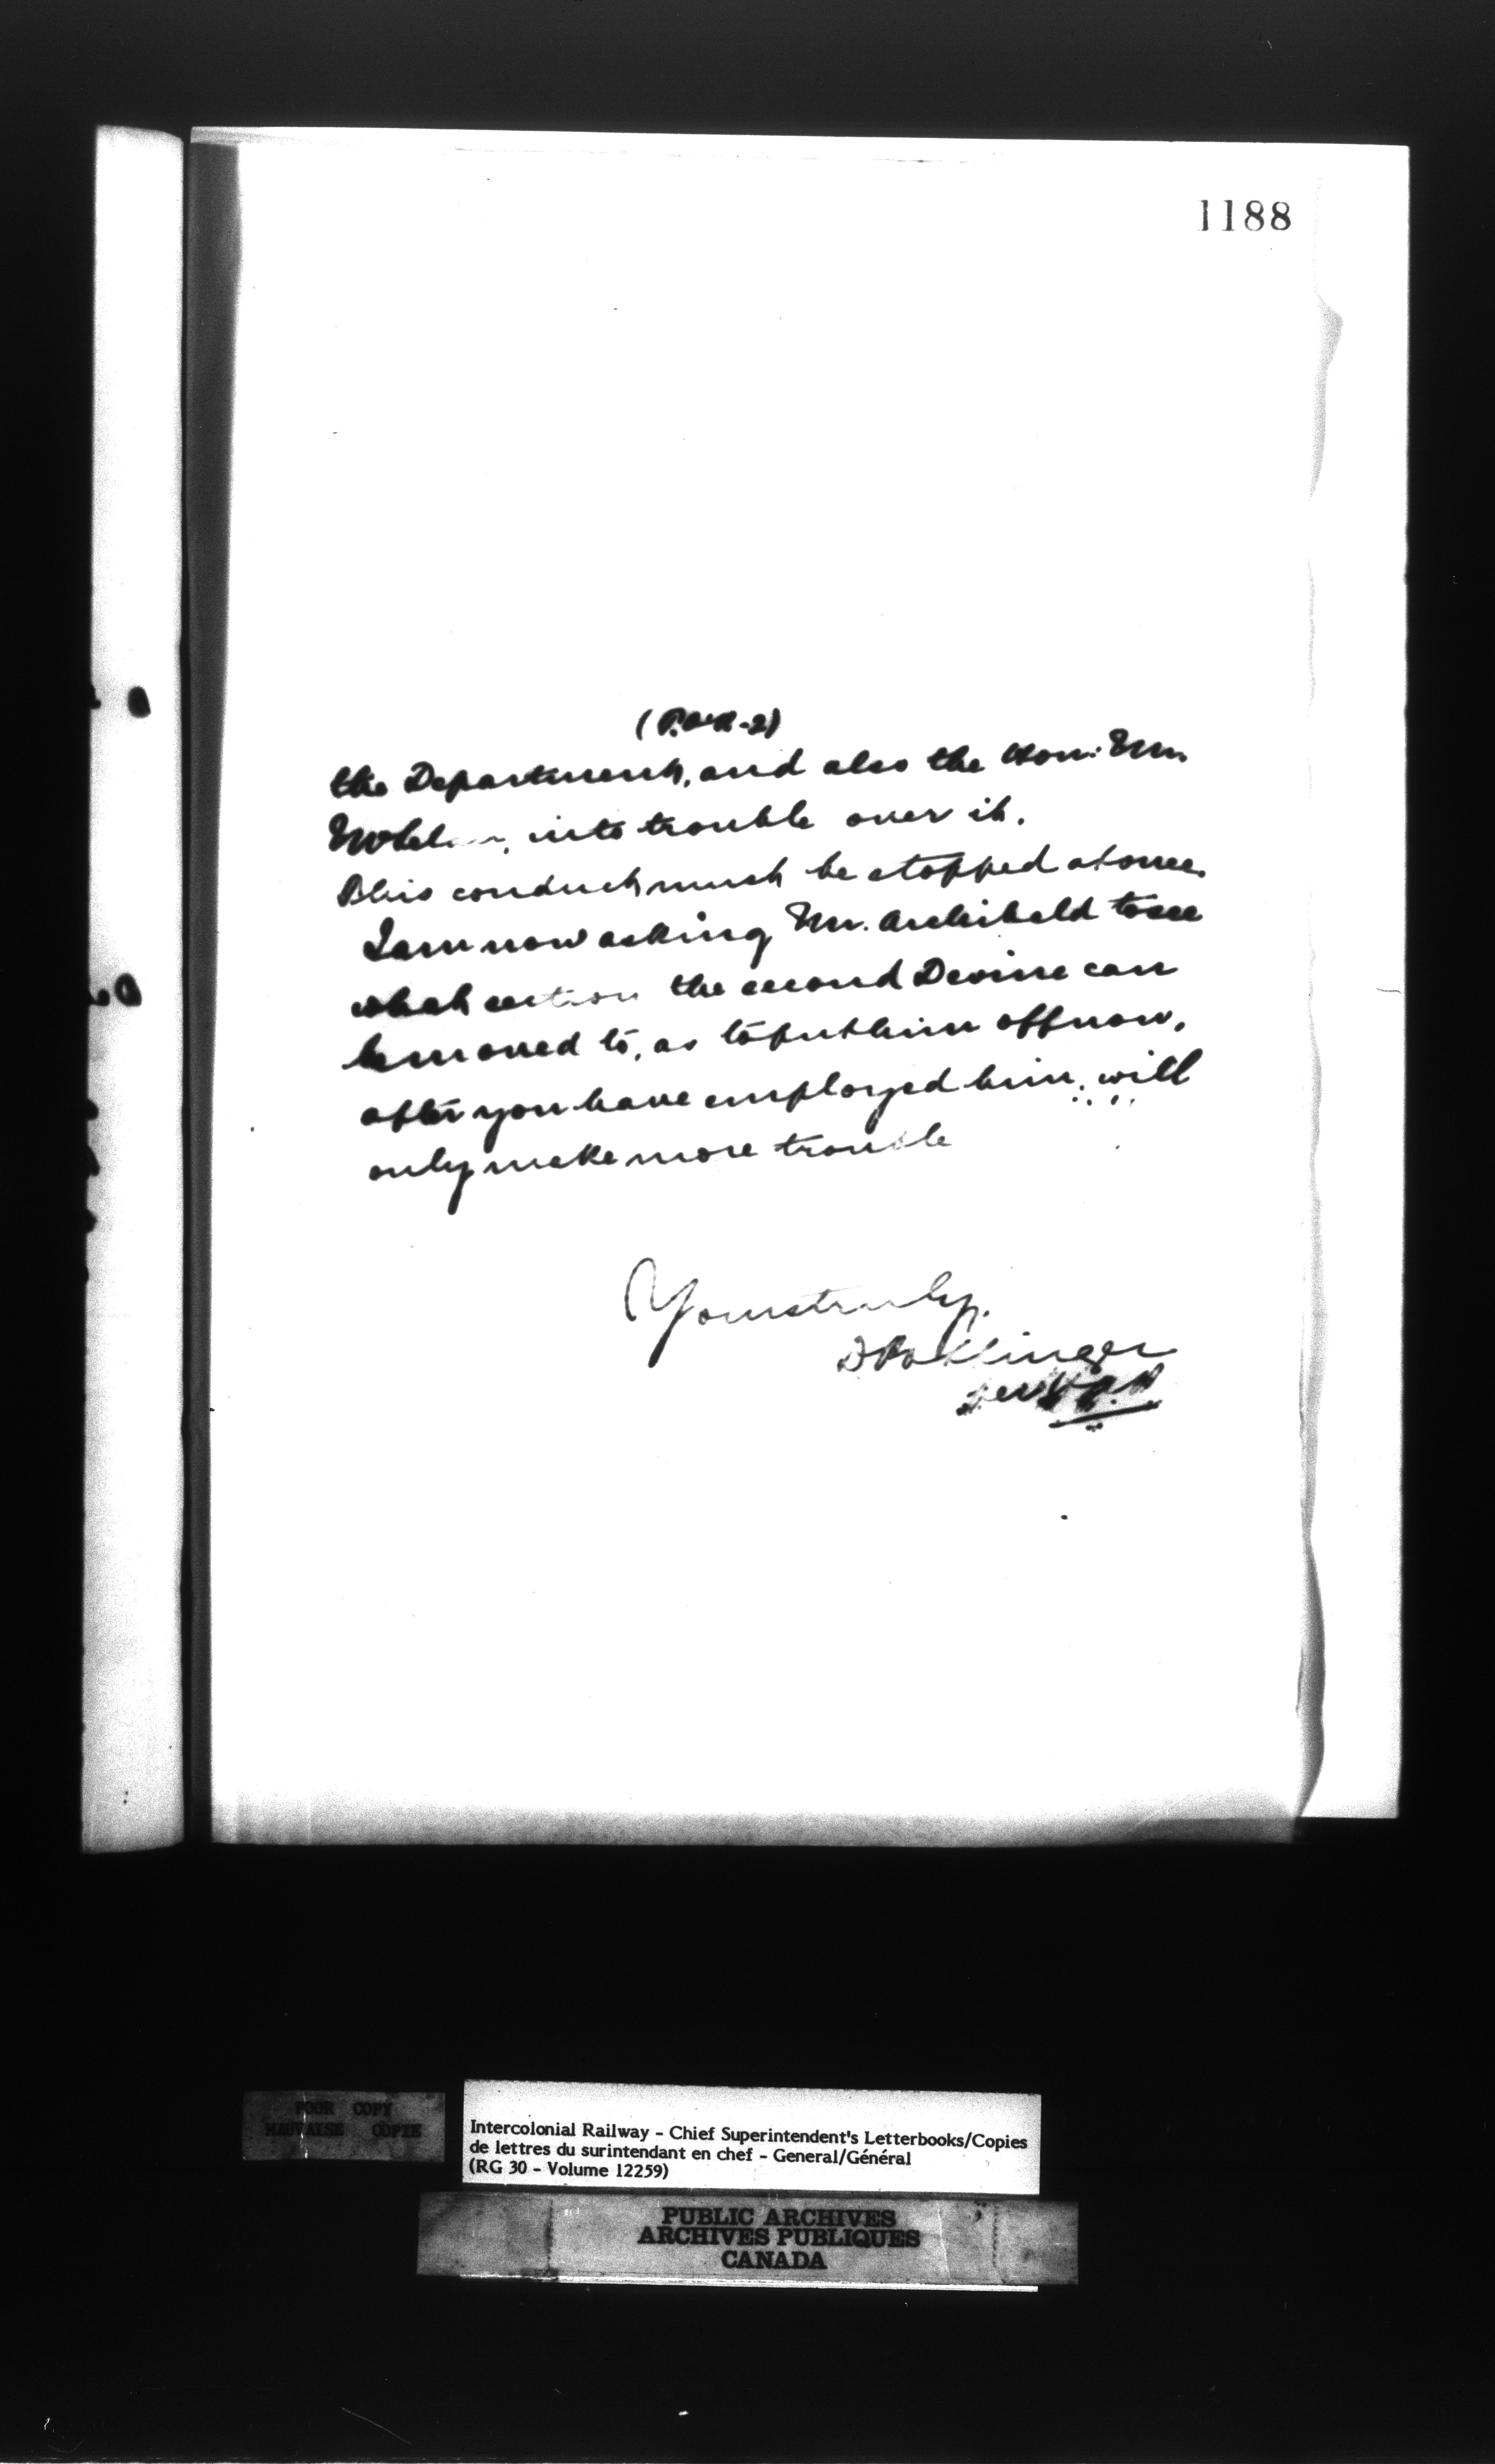 1188
the Department, and also the Hon: Mr.
into trouble over it.
This conduct must be stopped at once.
I am now asking Mr. Archibald to see
what section the second Devine can
be moved to, as to put him off now,
after you have employed him, will
only make more trouble
Yours truly,
D Pottinger
POOR COPY
MAUVAISE COPIE
Intercolonial Railway - Chief Superintendent's Letterbooks/Copies
de lettres du surintendant en chef - General/Général
(RG 30 - Volume 12259)
PUBLIC ARCHIVES
ARCHIVES PUBLIQUES
CANADA